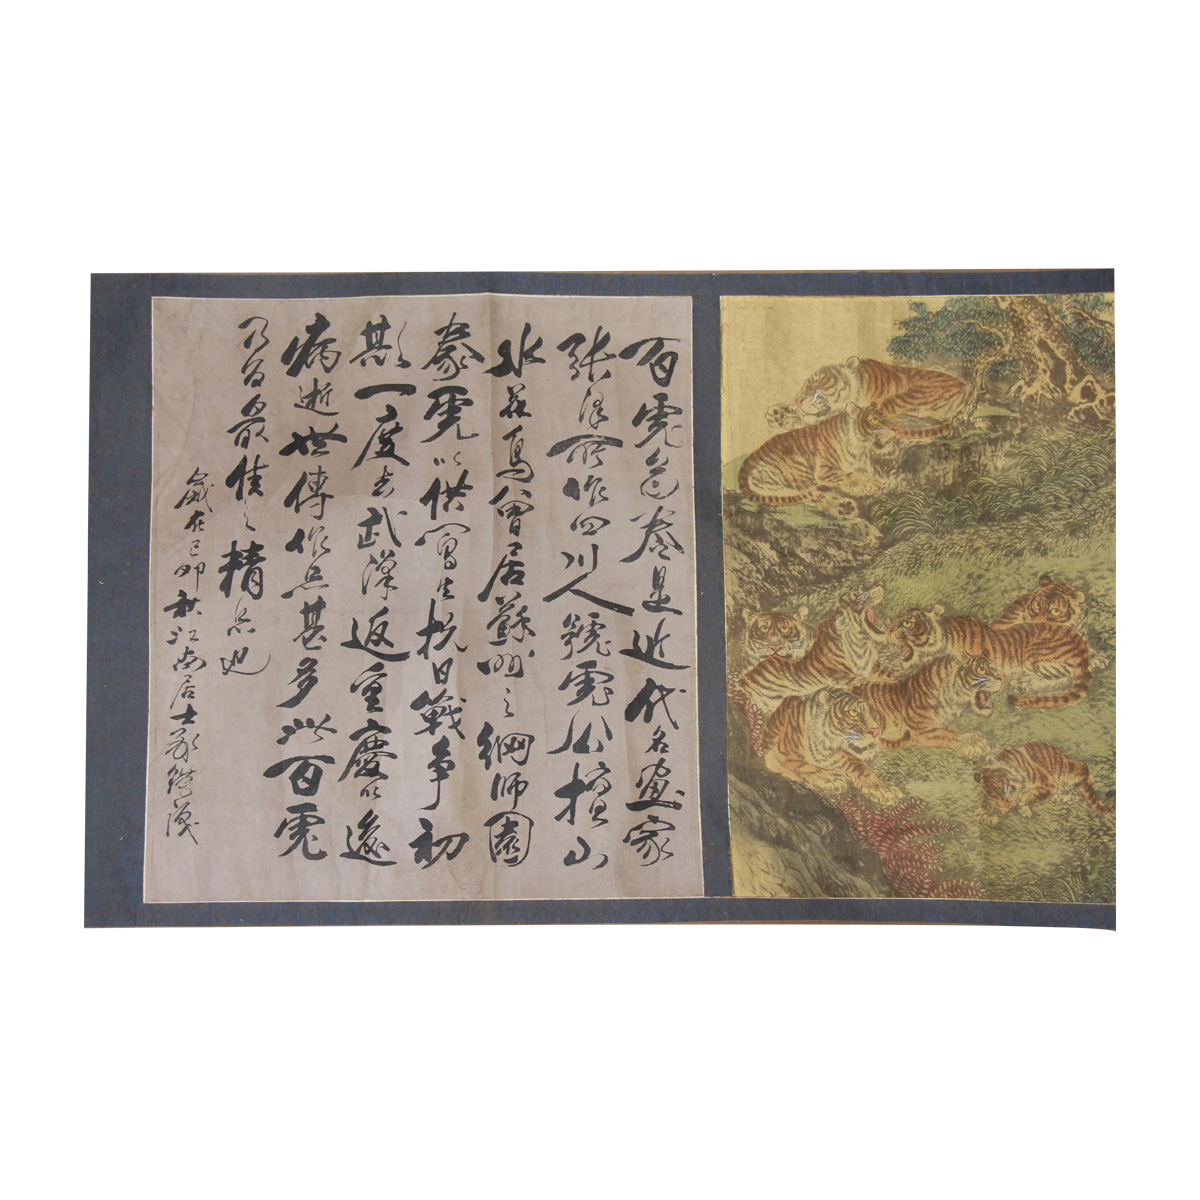 百虎图卷是近代名画家
张泽所作四川人號虎公擅山
水花鳥曾居蘇州之網师園
豢虎以供写生抗日戰争初
期一度去武漢返重慶以后
病逝世傳作品甚多此百虎
乃为最佳之精品也
歲在己卯秋江南居士